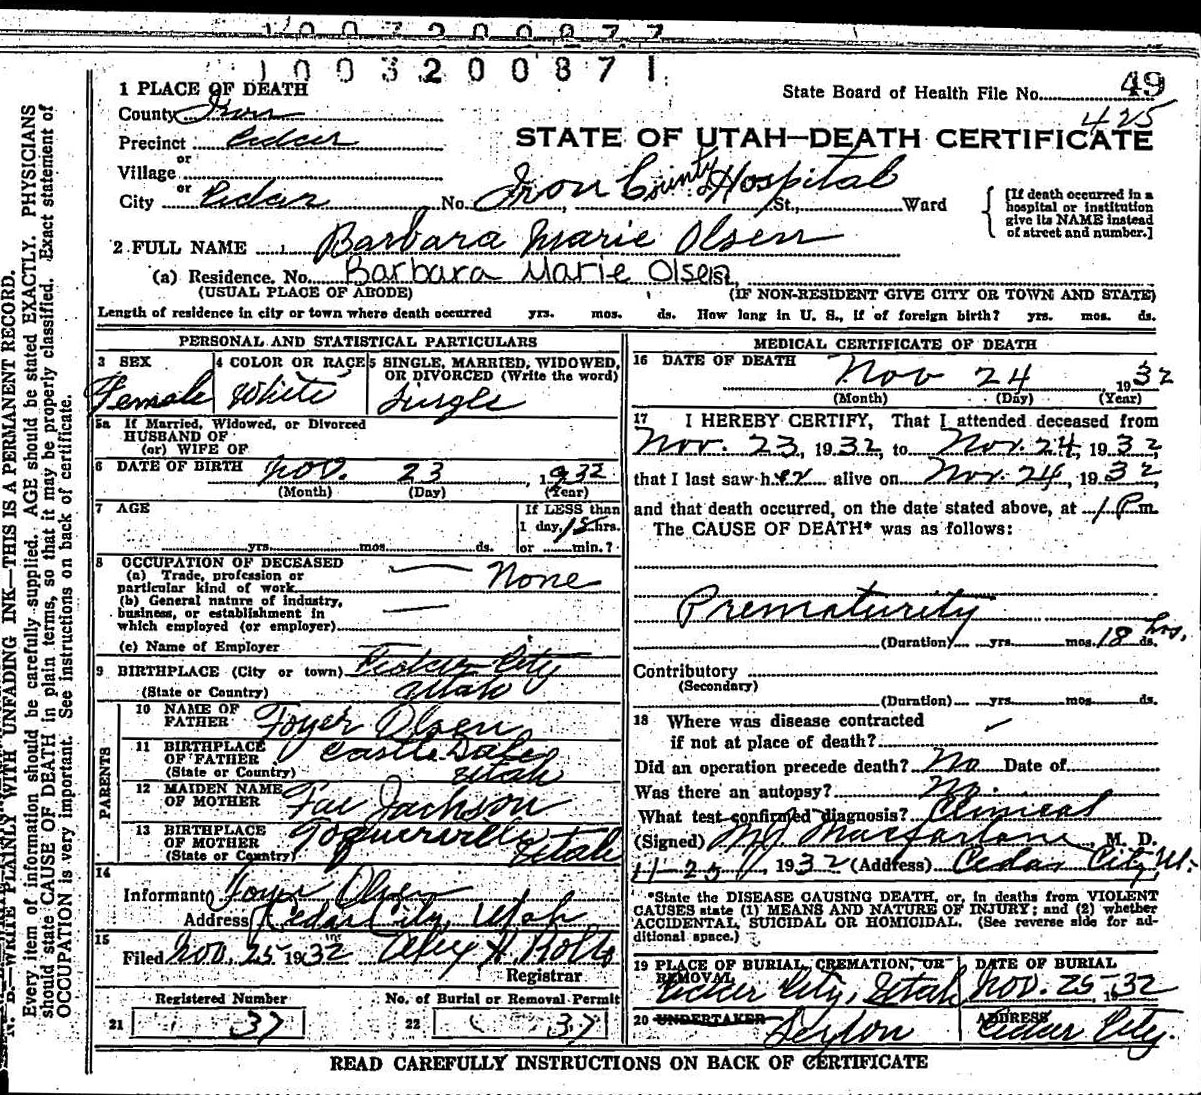 1003200871
49
1 PLACE OF DEATH
State Board of Health File No. 425
County Iron
STATE OF UTAH—DEATH CERTIFICATE
Precinct Cedar
or
Village
or
City Cedar No. Iron County Hospital St., Ward
[If death occurred in a hospital or institution give its NAME instead of street and number.]
2 FULL NAME Barbara Marie Olsen
(a) Residence. No. Barbara Marie Olsen
(USUAL PLACE OF ABODE) (IF NON-RESIDENT GIVE CITY OR TOWN AND STATE)
Length of residence in city or town where death occurred yrs. mos. ds. How long in U. S., if of foreign birth? yrs. mos. ds.
PERSONAL AND STATISTICAL PARTICULARS
3 SEX
Female
4 COLOR OR RACE
White
5 SINGLE, MARRIED, WIDOWED,
OR DIVORCED (Write the word)
Single
5a If Married, Widowed, or Divorced
HUSBAND OF
(or) WIFE OF
6 DATE OF BIRTH Nov. 23, 1932
(Month) (Day) (Year)
7 AGE
yrs. mos. ds.
If LESS than
1 day, 18 hrs.
or min.?
8 OCCUPATION OF DECEASED
(a) Trade, profession or
particular kind of work None
(b) General nature of industry,
business, or establishment in
which employed (or employer)
(c) Name of Employer
9 BIRTHPLACE (City or town) Cedar City
(State or Country) Utah
PARENTS
10 NAME OF
FATHER Foyer Olsen
11 BIRTHPLACE
OF FATHER Castle Dale
(State or Country) Utah
12 MAIDEN NAME
OF MOTHER Fae Jackson
13 BIRTHPLACE
OF MOTHER Toquerville Utah
(State or Country)
14
Informant Foyer Olsen
Address Cedar City, Utah
15
Filed Nov. 25 1932
Registrar
Registered Number
21 37
No. of Burial or Removal Permit
22 37
MEDICAL CERTIFICATE OF DEATH
16 DATE OF DEATH Nov 24 1932
(Month) (Day) (Year)
17 I HEREBY CERTIFY, That I attended deceased from
Nov. 23, 1932, to Nov. 24, 1932,
that I last saw her alive on Nov. 24, 1932,
and that death occurred, on the date stated above, at 1 P.m.
The CAUSE OF DEATH* was as follows:
Prematurity
(Duration) yrs. mos. 18 hrs. ds.
Contributory
(Secondary)
(Duration) yrs. mos. ds.
18 Where was disease contracted
if not at place of death?
Did an operation precede death? No Date of
Was there an autopsy? No.
What test confirmed diagnosis? Clinical
(Signed) M J Macfarlane, M. D.
11-25, 1932 (Address) Cedar City, Ut.
*State the DISEASE CAUSING DEATH, or, in deaths from VIOLENT
CAUSES state (1) MEANS AND NATURE OF INJURY; and (2) whether
ACCIDENTAL, SUICIDAL OR HOMICIDAL. (See reverse side for ad-
ditional space.)
19 PLACE OF BURIAL, CREMATION, OR
REMOVAL
Cedar City, Utah
DATE OF BURIAL
Nov. 25, 1932
20 UNDERTAKER Sexton
ADDRESS
Cedar City.
READ CAREFULLY INSTRUCTIONS ON BACK OF CERTIFICATE
N. B.—WRITE PLAINLY WITH UNFADING INK—THIS IS A PERMANENT RECORD.
Every item of information should be carefully supplied. AGE should be stated EXACTLY. PHYSICIANS
should state CAUSE OF DEATH in plain terms, so that it may be properly classified. Exact statement of
OCCUPATION is very important. See instructions on back of certificate.